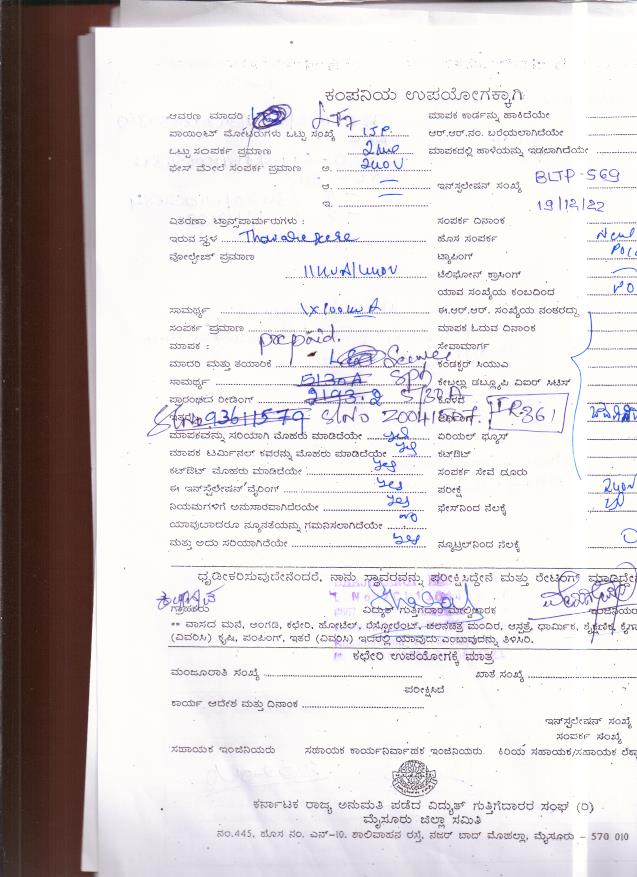 ಕಂಪನಿಯ ಉಪಯೋಗಕ್ಕಾಗಿ
ಆವರಣ ಮಾದರಿ : LT7 ಮಾಪಕ ಕಾರ್ಡನ್ನು ಹಾಕಿದೆಯೇ
ಪಾಯಿಂಟ್ ಮೋಟರುಗಳು ಒಟ್ಟು ಸಂಖ್ಯೆ 1.S.P. ಆರ್.ಆರ್.ನಂ. ಬರೆಯಲಾಗಿದೆಯೇ
ಒಟ್ಟು ಸಂಪರ್ಕ ಪ್ರಮಾಣ ಮಾಪಕದಲ್ಲಿ ಹಾಳೆಯನ್ನು ಇಡಲಾಗಿದೆಯೇ
ಫೇಸ್ ಮೇಲೆ ಸಂಪರ್ಕ ಪ್ರಮಾಣ ಅ. 240V
ಆ. ಇನ್‌ಸ್ಟಲೇಷನ್ ಸಂಖ್ಯೆ BLTP-569
ಇ. 19/12/22
ವಿತರಣಾ ಟ್ರಾನ್ಸ್‌ಪಾರ್ಮರುಗಳು : ಸಂಪರ್ಕ ದಿನಾಂಕ
ಇರುವ ಸ್ಥಳ Thavarekere ಹೊಸ ಸಂಪರ್ಕ
ವೋಲ್ಟೇಜ್ ಪ್ರಮಾಣ ಟ್ಯಾಪಿಂಗ್
ಟೆಲಿಫೋನ್ ಕ್ರಾಸಿಂಗ್
ಯಾವ ಸಂಖ್ಯೆಯ ಕಂಬದಿಂದ
ಸಾಮರ್ಥ್ಯ ಈ.ಆರ್.ಆರ್. ಸಂಖ್ಯೆಯ ನಂತರದ್ದು
ಸಂಪರ್ಕ ಪ್ರಮಾಣ ಮಾಪಕ ಓದುವ ದಿನಾಂಕ
ಮಾಪಕ : prepaid. ಸೇವಾಮಾರ್ಗ
ಮಾದರಿ ಮತ್ತು ತಯಾರಿಕೆ ಕಂಡಕ್ಟರ್ ಸಿಯುಎ
ಸಾಮರ್ಥ್ಯ 5/30A ಕೇಬಲ್ಲು ಡಬ್ಲ್ಯೂಪಿ ವಿಐರ್ ಸಿಟಿಸ್
ಪ್ರಾರಂಭದ ರೀಡಿಂಗ್ 2193.2
93611579 S/NO
ಮಾಪಕವನ್ನು ಸರಿಯಾಗಿ ಮೊಹರು ಮಾಡಿದೆಯೇ yes ಏರಿಯಲ್ ಫ್ಯೂಸ್
ಮಾಪಕ ಟರ್ಮಿನಲ್ ಕವರನ್ನು ಮೊಹರು ಮಾಡಿದೆಯೇ yes ಕಟ್‌ಔಟ್
ಕಟ್‌ಔಟ್ ಮೊಹರು ಮಾಡಿದೆಯೇ yes ಸಂಪರ್ಕ ಸೇವೆ ದೂರು
ಈ ಇನ್‌ಸ್ಟಲೇಷನ್ ವೈರಿಂಗ್ yes ಪರೀಕ್ಷೆ
ನಿಯಮಗಳಿಗೆ ಅನುಸಾರವಾಗಿದೆರಯೇ yes ಫೇಸ್‌ನಿಂದ ನೆಲಕ್ಕೆ
ಯಾವುದಾದರೂ ನ್ಯೂನತೆಯನ್ನು ಗಮನಿಸಲಾಗಿದೆಯೇ no
ಮತ್ತು ಅದು ಸರಿಯಾಗಿದೆಯೇ yes ನ್ಯೂಟ್ರಲ್‌ನಿಂದ ನೆಲಕ್ಕೆ
ಧೃಡೀಕರಿಸುವುದೇನೆಂದರೆ, ನಾನು ಸ್ಥಾವರವನ್ನು ಪರೀಕ್ಷಿಸಿದ್ದೇನೆ ಮತ್ತು ರೇಟಿಂಗ್ ಮಾಡಿದ್ದೇನೆ
ಗ್ರಾಹಕರು ವಿದ್ಯುತ್ ಗುತ್ತಿಗೆದಾರ/ಮೇಲ್ವಿಚಾರಕ
** ವಾಸದ ಮನೆ, ಅಂಗಡಿ, ಕಛೇರಿ, ಹೋಟೆಲ್, ರೆಸ್ಟೋರೆಂಟ್, ಚಲನಚಿತ್ರ ಮಂದಿರ, ಆಸ್ಪತ್ರೆ, ಧಾರ್ಮಿಕ, ಶೈಕ್ಷಣಿಕ, ಕೈಗಾ
(ವಿವರಿಸಿ) ಕೃಷಿ, ಪಂಪಿಂಗ್, ಇತರೆ (ವಿವರಿಸಿ) ಇದರಲ್ಲಿ ಯಾವುದು ಎಂಬುವುದನ್ನು ತಿಳಿಸಿರಿ.
ಕಛೇರಿ ಉಪಯೋಗಕ್ಕೆ ಮಾತ್ರ
ಮಂಜೂರಾತಿ ಸಂಖ್ಯೆ ಖಾತೆ ಸಂಖ್ಯೆ
ಪರೀಕ್ಷಿಸಿದೆ
ಕಾರ್ಯ ಆದೇಶ ಮತ್ತು ದಿನಾಂಕ
ಇನ್‌ಸ್ಟಲೇಷನ್ ಸಂಖ್ಯೆ
ಸಂಪರ್ಕ ಸಂಖ್ಯೆ
ಸಹಾಯಕ ಇಂಜಿನಿಯರು ಸಹಾಯಕ ಕಾರ್ಯನಿರ್ವಾಹಕ ಇಂಜಿನಿಯರು. ಕಿರಿಯ ಸಹಾಯಕ/ಸಹಾಯಕ ಲೆಕ್ಕ
ಕರ್ನಾಟಕ ರಾಜ್ಯ ಅನುಮತಿ ಪಡೆದ ವಿದ್ಯುತ್ ಗುತ್ತಿಗೆದಾರರ ಸಂಘ (ರಿ)
ಮೈಸೂರು ಜಿಲ್ಲಾ ಸಮಿತಿ
ನಂ.445, ಹೊಸ ನಂ. ಎನ್-10, ಶಾಲಿವಾಹನ ರಸ್ತೆ, ನಜರ್ ಬಾದ್ ಮೊಹಲ್ಲಾ, ಮೈಸೂರು - 570 010